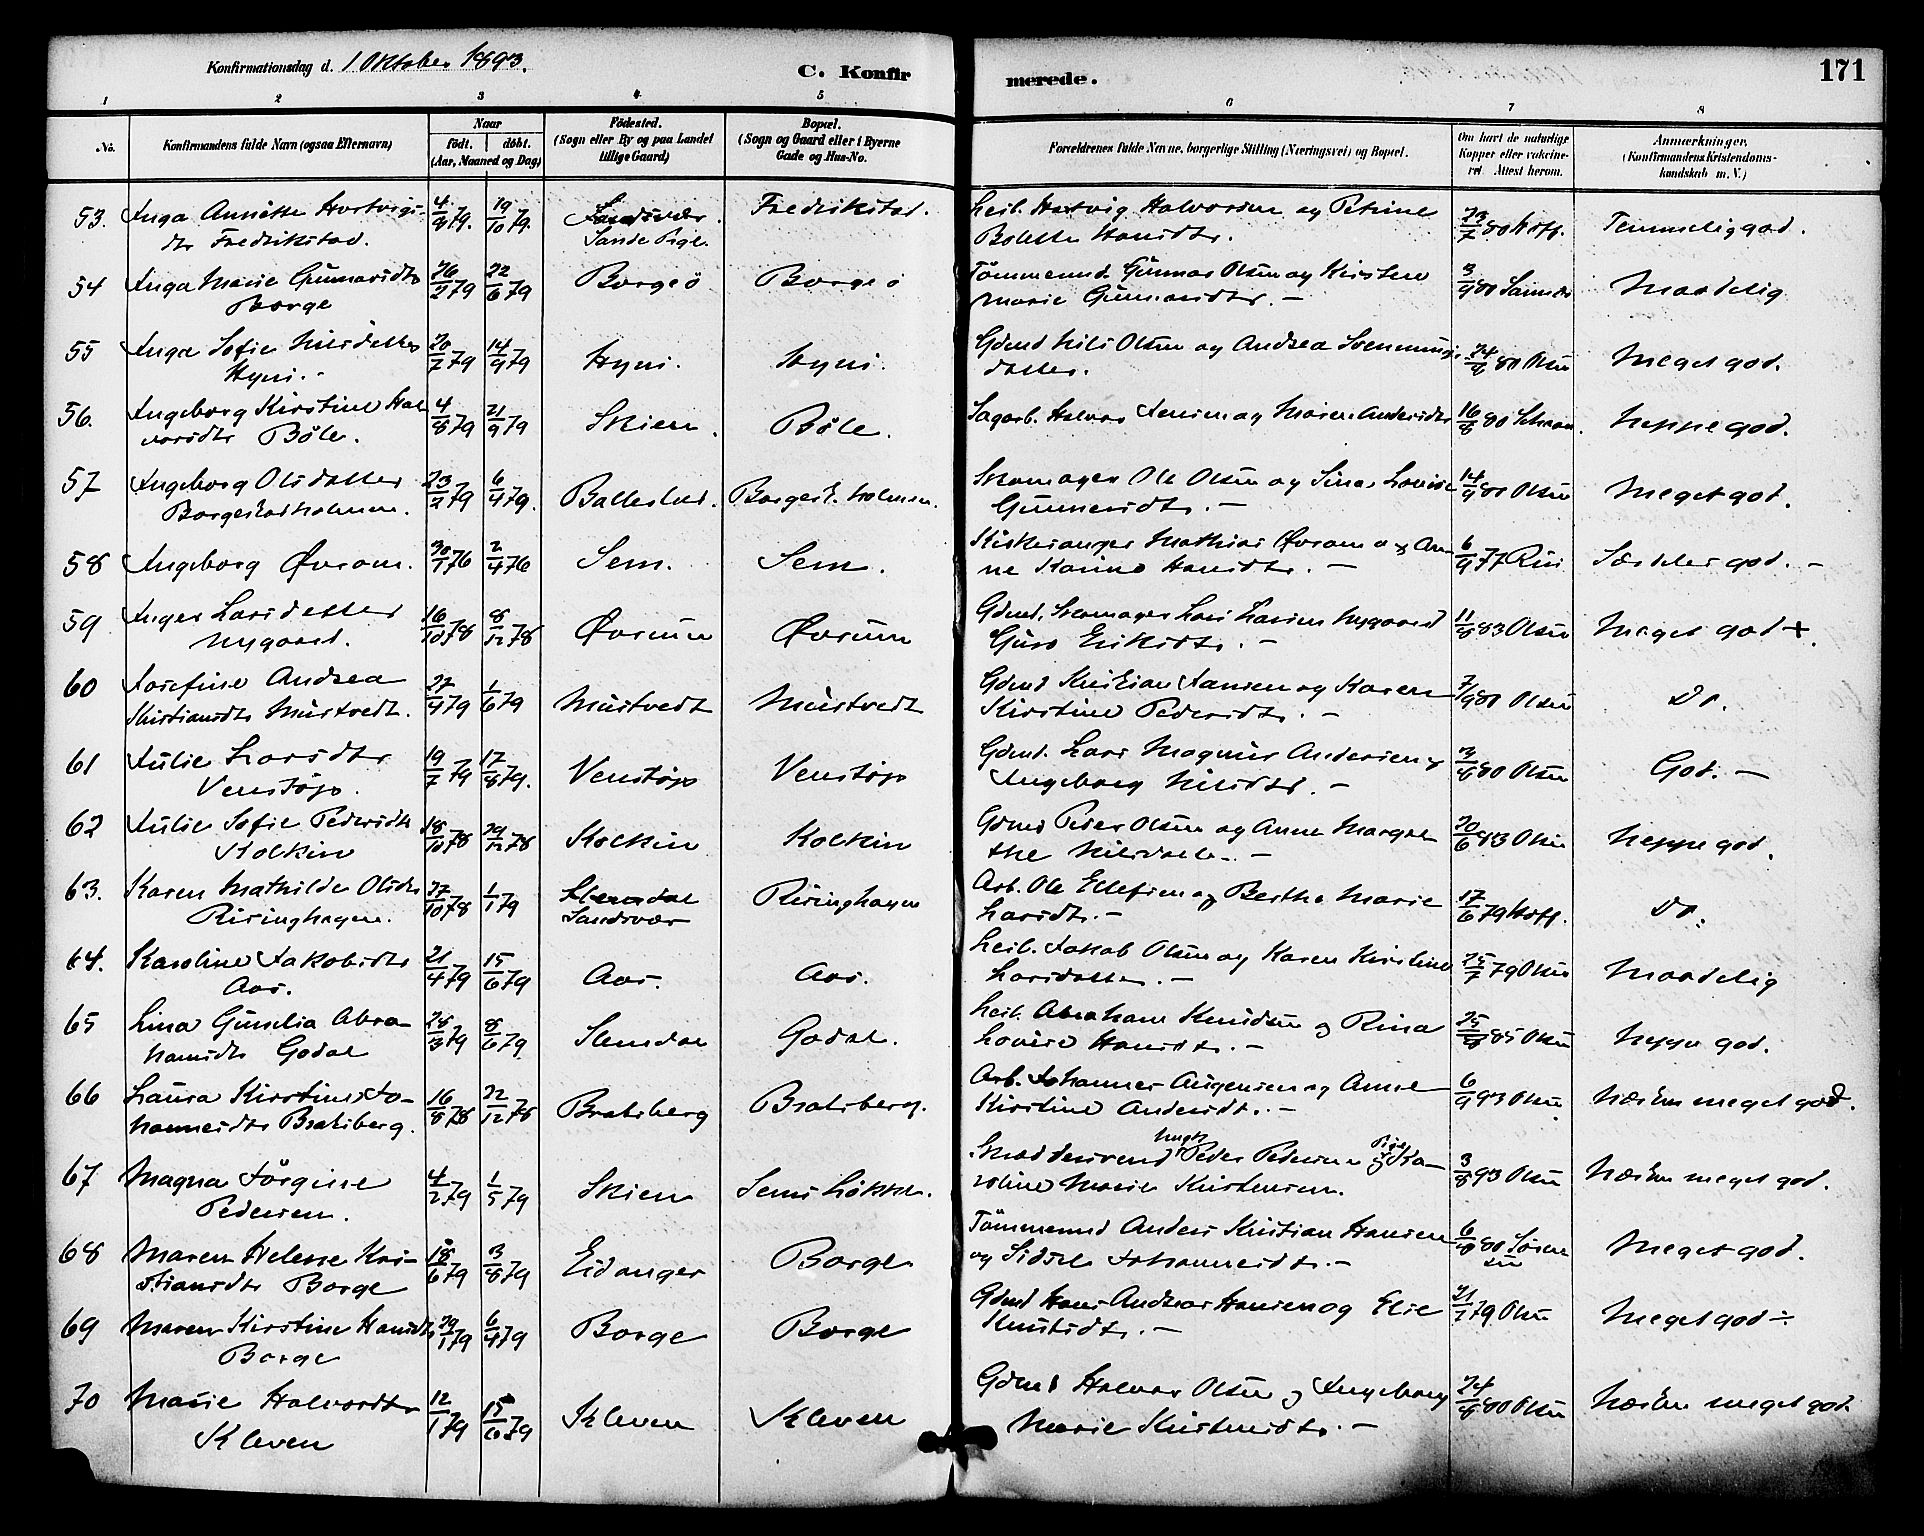 Konfirmationsdag d. 1 Oktober 1893.
C. Konfirmerede.
171
1 2 3 4 5 6 7 8
No.
Konfirmandens fulde Navn (ogsaa Efternavn)
Naar
födt. döbt.
(Aar, Maaned og Dag)
Födested.
(Sogn eller By og paa Landet
tillige Gaard)
Bopæl.
(Sogn og Gaard eller i Byerne
Gade og Hus-No.
Forældrenes fulde Navne, borgerlige Stilling (Næringsvei) og Bopæl.
Om havt de naturlige
Kopper eller vakcine-
ret. Attest herom.
Anmærkninger.
(Konfirmandens Kristendoms-
kundskab m. V.)
53. Inga Annette Hartvigs- 4/9 79. 19/10 79. Sandsvær. Fredrikstad. Leil. Hartvig Halvorsen og Petrine 23/7 80 Hoff. Temmelig god.
dtr Fredrikstad. Sande Prgl. Bolette Hansdtr.
54 Inga Marie Gunnarsdtr 26/2 79 22/6 79 Borgeö Borgeö Tömmermd. Gunnar Olsen og Kirstine 3/9 80 Maadelig
Borge Marie Gunnarsdtr. —
55 Inga Sofie Nilsdatter 20/7 79 14/9 79 Hyni. Hyni. Gdmd Nils Olsen og Andrea Svennungs- 24/8 80 Olsen Meget god.
Hyni. datter.
56. Ingeborg Kirstine Hal 4/8 79 21/9 79 Skien. Böle. Sagarb. Halvor Jensen og Maren Andersdtr 16/8 80 Meppe god.
vorsdtr Böle.
57 Ingeborg Olsdatter 23/2 79 6/4 79. Ballestad. Borgest. holmen. Skomager Ole Olsen og Sina Lovise 14/9 80 Olsen Meget god.
Borgestadholmen. Gunnersdtr. —
58 Ingeborg Övrom. 30/1 76 2/4 76 Sem. Sem. Mathias Övrom og An- 6/9 77 Særdeles god. —
ne Karine Hansdtr. —
59 Inger Larsdatter 16/10 78 8/12 78 Övrum Övrum Gdmd, Skomager Lars Larsen Nygaard 11/8 83 Olsen Meget god +.
Nygaard. Guro Eriksdtr. —
60 Josefine Andrea 27/4 79 1/6 79 Mustvedt Mustvedt Gdmd Kristian Jansen og Karen 7/9 80 Olsen Do.
Kristiansdtr Mustvedt. Kirstine Pedersdtr. —
61 Julie Larsdtr 19/7 79 17/8 79. Venstöp Venstöp Gdmd. Lars Magnus Andersen og 3/8 80 Olsen God. —
Venstöp. Ingeborg Nilsdtr. —
62 Julie Sofie Pedersdtr 18/10 78 29/12 78 Kolkin Kolkin Gdmd Peder Olsen og Anne Margre 20/6 83 Olsen Neppe god.
Kolkin the Nilsdatr. —
63. Karen Mathilde Olsdtr 27/10 78 1/1 79 Slemdal Risinghagen Arb. Ole Ellefsen og Berthe Marie 17/6 79 Hoff. Do.
Risinghagen. Sandsvær Larsdtr. —
64. Karoline Jakobsdtr 21/4 79 15/6 79 Aas. Aas. Leil. Jakob Olsen og Karen Kirstine 25/7 79 Olsen Maadelig
Aas. Larsdatter. —
65 Lina Gunelia Abra- 28/3 79 8/6 79 Slemdal Godal. Leil. Abraham Knudsen og Rina 25/8 85 Olsen Neppe god.
hamsdtr Godal Lovise Hansdtr. —
66 Laura Kirstine Jo- 16/8 78 22/12 78 Bratsberg Bratsberg. Arb. Johannes Augensen og Anne 6/9 93 Olsen Næsten meget god.
hannesdtr Bratsberg. Kirstine Andersdtr. —
67 Magna Jörgine 4/2 79 1/5 79 Skien Sems Lökke. Smeddesvend Ungk Peder Pedersen og Pige Ka- 3/8 93 Olsen Næsten meget god.
Pedersen. roline Marie Kristensen.
68 Maren Helene Kri- 18/6 79 3/8 79 Eidanger Borge Tömmermd Anders Kristian Hansen 6/8 80 Sören Meget god.
stiansdtr Borge og Sidsel Johannesdtr. — sen
69 Maren Kirstine Hansdtr 29/1 79 6/4 79 Borge Borge Gdmd Hans Andreas Hansen og Elie 21/7 79 Olsen Meget god ÷
Borge Knutsdtr. —
70 Marie Halvorsdtr 12/1 79 15/6 79 Kleven Kleven Gdmd Halvor Olsen og Ingeborg 24/8 80 Olsen Næsten meget god.
Kleven Marie Kristensdtr. —